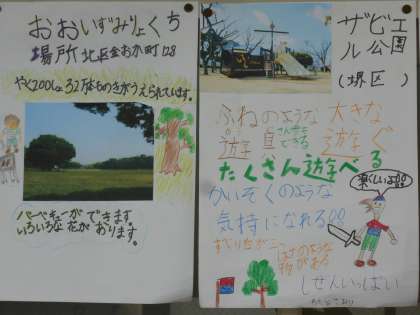 おおいずみりょくち
場所 北区金おか町128
やく200しゅ32万本ものきがうえられています。
バーベキューができます。
いろいろな花があります。
ザビエ
ル公園
(堺区)
ふねのような大きな
遊具
できる
遊ぐ
たくさん遊べる
楽しいよ!!
かいぞくのような
気持になれる!!
すべり台が二こ
物がある
しぜんいっぱい